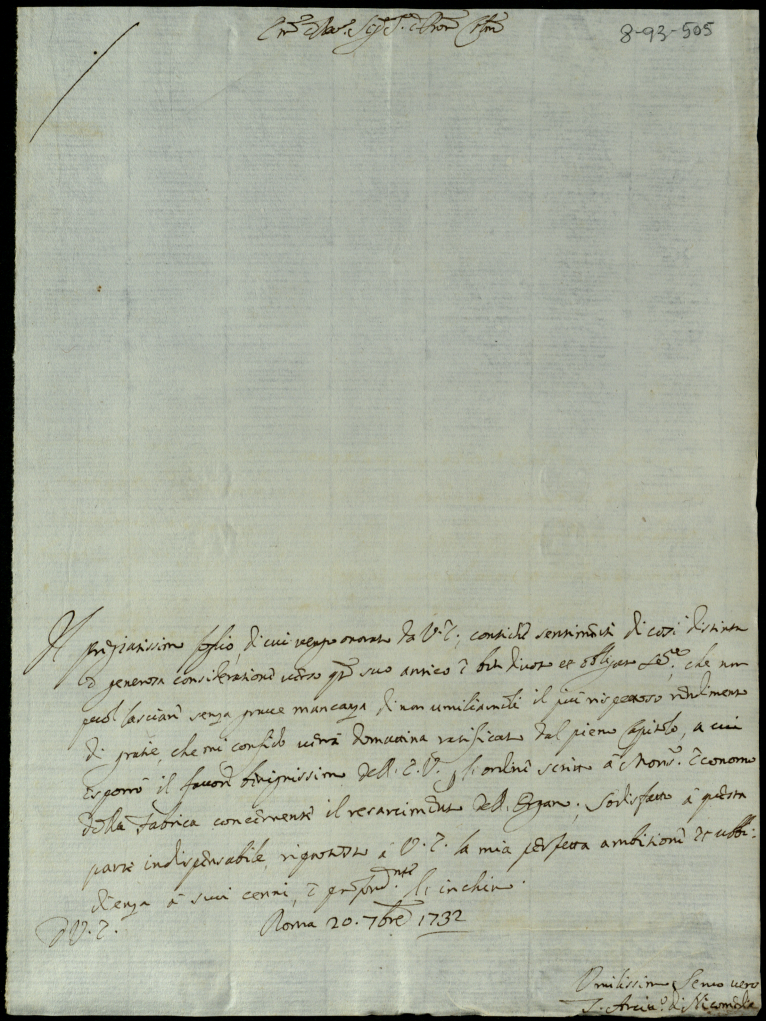 Em.mo e Rev. Sig. S. e Pron Col.mo
8-93-505
Il pregiatissimo foglio, di cui vengo onorato da V. E., contiene sentimenti di così distinta
e generosa consideratione verso q.to suo antico e ben divoto et obligato Se.re, che non
puol lasciare senza grave mancanza, di non umiliarne il più rispettoso rendimento
di gratie, che mi confido verrà domattina ratificato dal pieno Capitolo, a cui
esporrò il favore benignissimo dell. E. V. p. li ordini scritti à Mons. Economo
della Fabrica concernenti il resarcimento dell. Organo; Sodisfatto à questa
parte indispensabile, rignoto à V. E. la mia perfetta ambitione et ubbi:
dienza à suoi cenni, e li inchino.
D V. E.
Roma 20. 7bre 1732
Umilissimo Servo vero
Arciv.o di Nicomedia